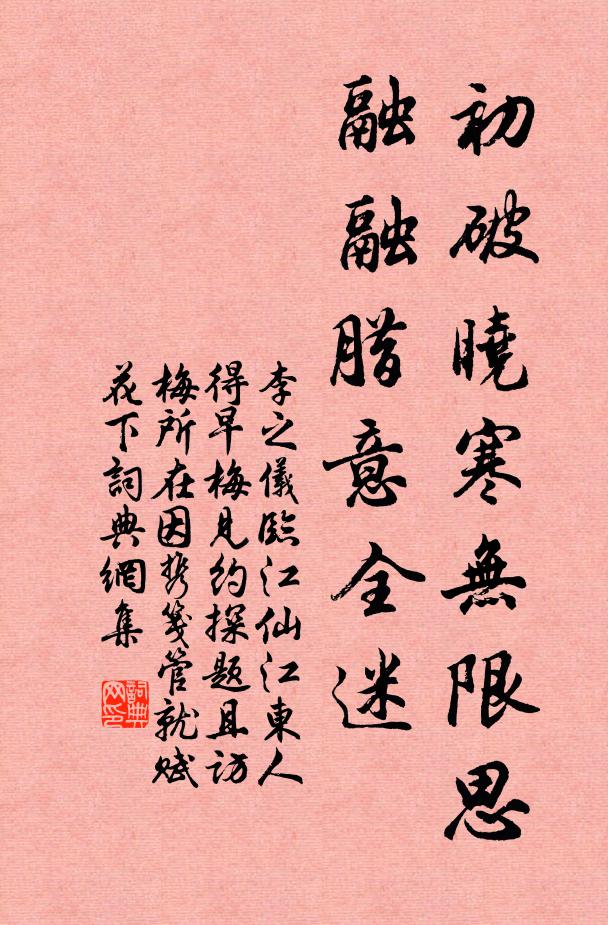 初破曉寒無限思
融融腊意全迷
李之儀臨江仙江東人
得早梅見約探題且訪
梅所在因携箋管就賦
花下詞典網集
詞典
网印